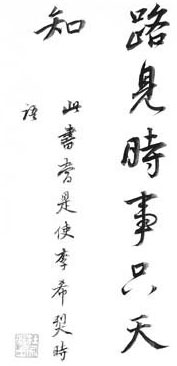 路見時事只天
知
此書當是使李希烈時
語